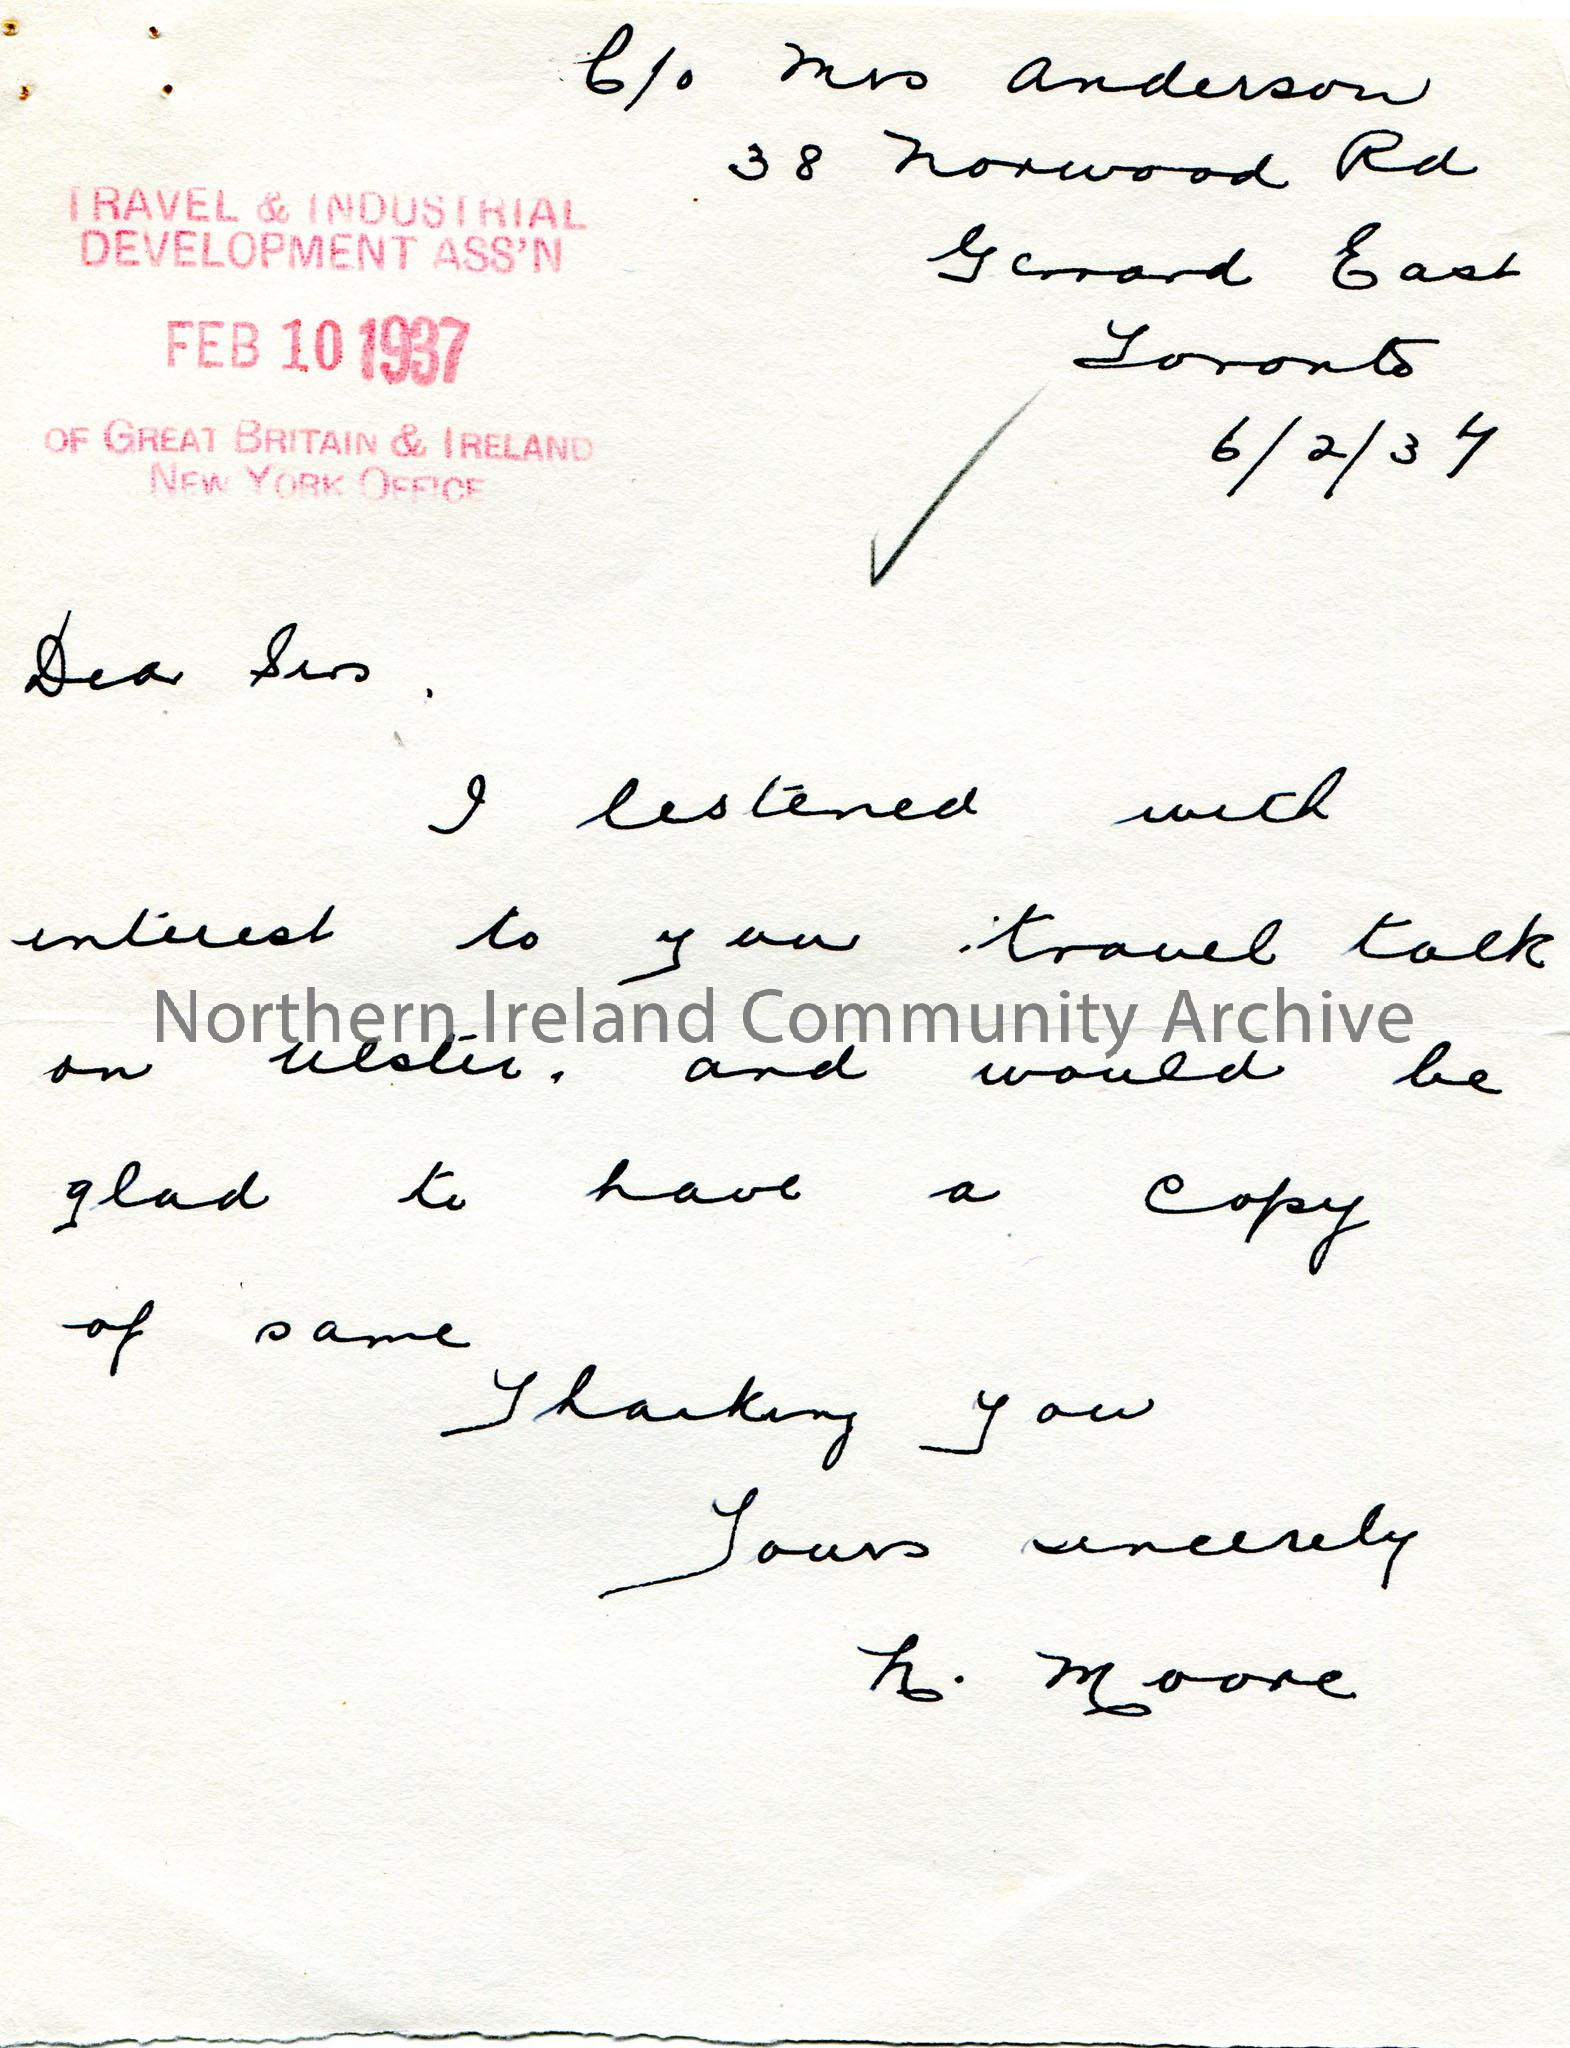 C/o Mrs Anderson
38 Norwood Rd
Gerrard East
Toronto
6/2/37
TRAVEL & INDUSTRIAL
DEVELOPMENT ASS'N
FEB 10 1937
OF GREAT BRITAIN & IRELAND
NEW YORK OFFICE
Dear Sirs,
I listened with
interest to your travel talk
Northern Ireland Community Archive
on Ulster. and would be
glad to have a copy
of same
Thanking you
Yours sincerely
Moore